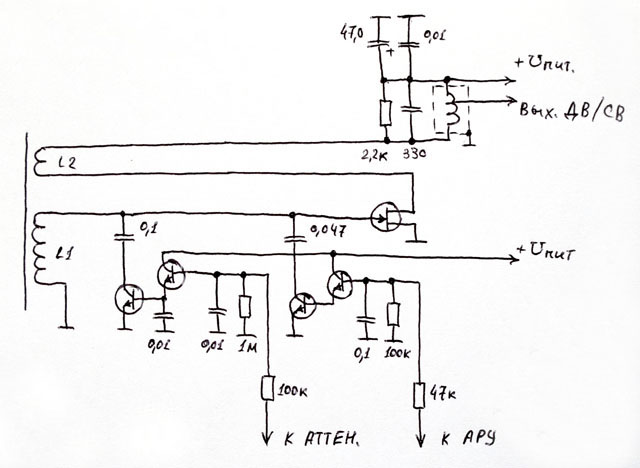 47,0
+
0,01
+Uпит.
Вых. ДВ/СВ
2,2к
330
L2
0,1
0,047
+Uпит
L1
0,01
0,01
1м
0,1
100к
100к
47к
К АТТЕН.
К АРУ